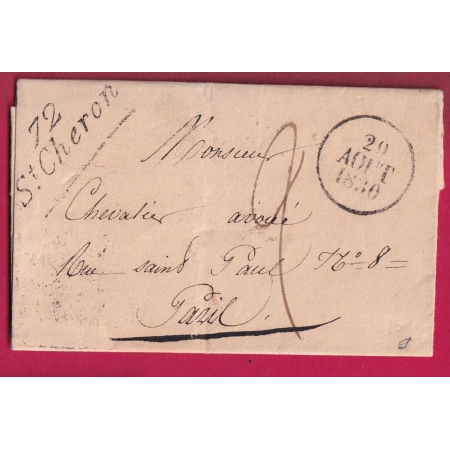 72
St Cheron
29
AOUT
1830
2
Monsieur
Chevalier avoué
Rue saint Paul No 8 =
Paris.